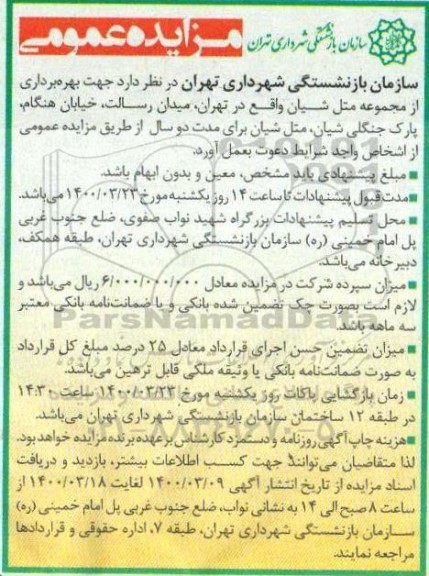 سازمان بازنشستگی شهرداری تهران
مزایده عمومی
سازمان بازنشستگی شهرداری تهران در نظر دارد جهت بهره‌برداری
از مجموعه متل شیان واقع در تهران، میدان رسالت، خیابان هنگام،
پارک جنگلی شیان، متل شیان برای مدت دو سال از طریق مزایده عمومی
از اشخاص واجد شرایط دعوت بعمل آورد.
■ مبلغ پیشنهادی باید مشخص، معین و بدون ابهام باشد.
■ مدت قبول پیشنهادات تا ساعت ۱۴ روز یکشنبه مورخ ۱۴۰۰/۰۳/۲۳ می‌باشد.
■ محل تسلیم پیشنهادات بزرگراه شهید نواب صفوی، ضلع جنوب غربی
پل امام خمینی (ره) سازمان بازنشستگی شهرداری تهران، طبقه همکف،
دبیرخانه می‌باشد.
■ میزان سپرده شرکت در مزایده معادل ۶/۰۰۰/۰۰۰/۰۰۰ ریال می‌باشد و
لازم است بصورت چک تضمین شده بانکی و یا ضمانت‌نامه بانکی معتبر
سه ماهه باشد.
■ میزان تضمین حسن اجرای قرارداد معادل ۲۵ درصد مبلغ کل قرارداد
به صورت ضمانت‌نامه بانکی یا وثیقه ملکی قابل ترهین می‌باشد.
■ زمان بازگشایی پاکات روز یکشنبه مورخ ۱۴۰۰/۰۳/۲۳ ساعت ۱۴:۳۰
در طبقه ۱۲ ساختمان سازمان بازنشستگی شهرداری تهران می‌باشد.
■ هزینه چاپ آگهی روزنامه و دستمزد کارشناس بر عهده برنده مزایده خواهد بود.
لذا متقاضیان می‌توانند جهت کسب اطلاعات بیشتر، بازدید و دریافت
اسناد مزایده از تاریخ انتشار آگهی ۱۴۰۰/۰۳/۰۹ لغایت ۱۴۰۰/۰۳/۱۸ از
ساعت ۸ صبح الی ۱۴ به نشانی نواب، ضلع جنوب غربی پل امام خمینی (ره)
سازمان بازنشستگی شهرداری تهران، طبقه ۷، اداره حقوقی و قراردادها
مراجعه نمایند.
ParsNamadData